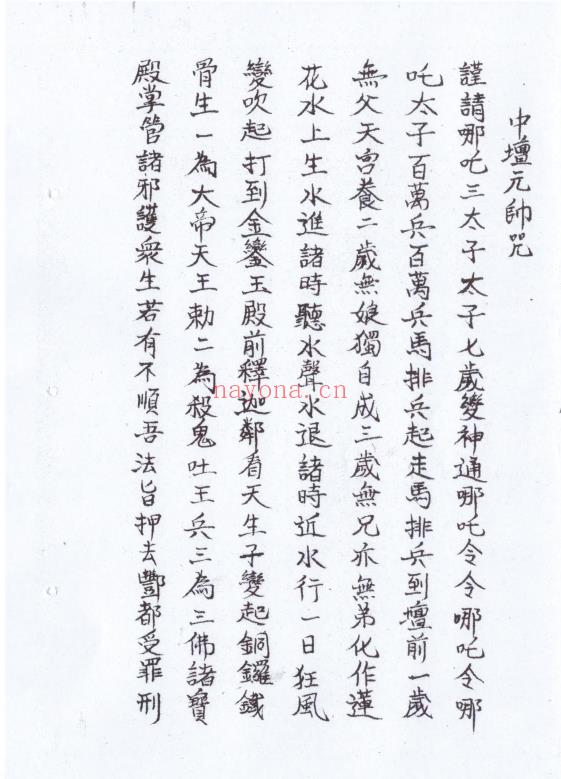 中壇元帥咒
謹請哪吒三太子太子七歲變神通哪吒令令哪吒令哪
吒太子百萬兵百萬兵馬排兵起走馬排兵到壇前一歲
無父天宮養二歲無娘獨自成三歲無兄亦無弟化作蓮
花水上生水進諸時聽水聲水退諸時近水行一日狂風
變吹起打到金鑾玉殿前釋迦鄰看天生子變起銅鑼鐵
骨生一為大帝天王勅二為殺鬼吐王兵三為三佛諸寶
殿掌管諸邪護衆生若有不順吾法旨押去酆都受罪刑
nayona.cn